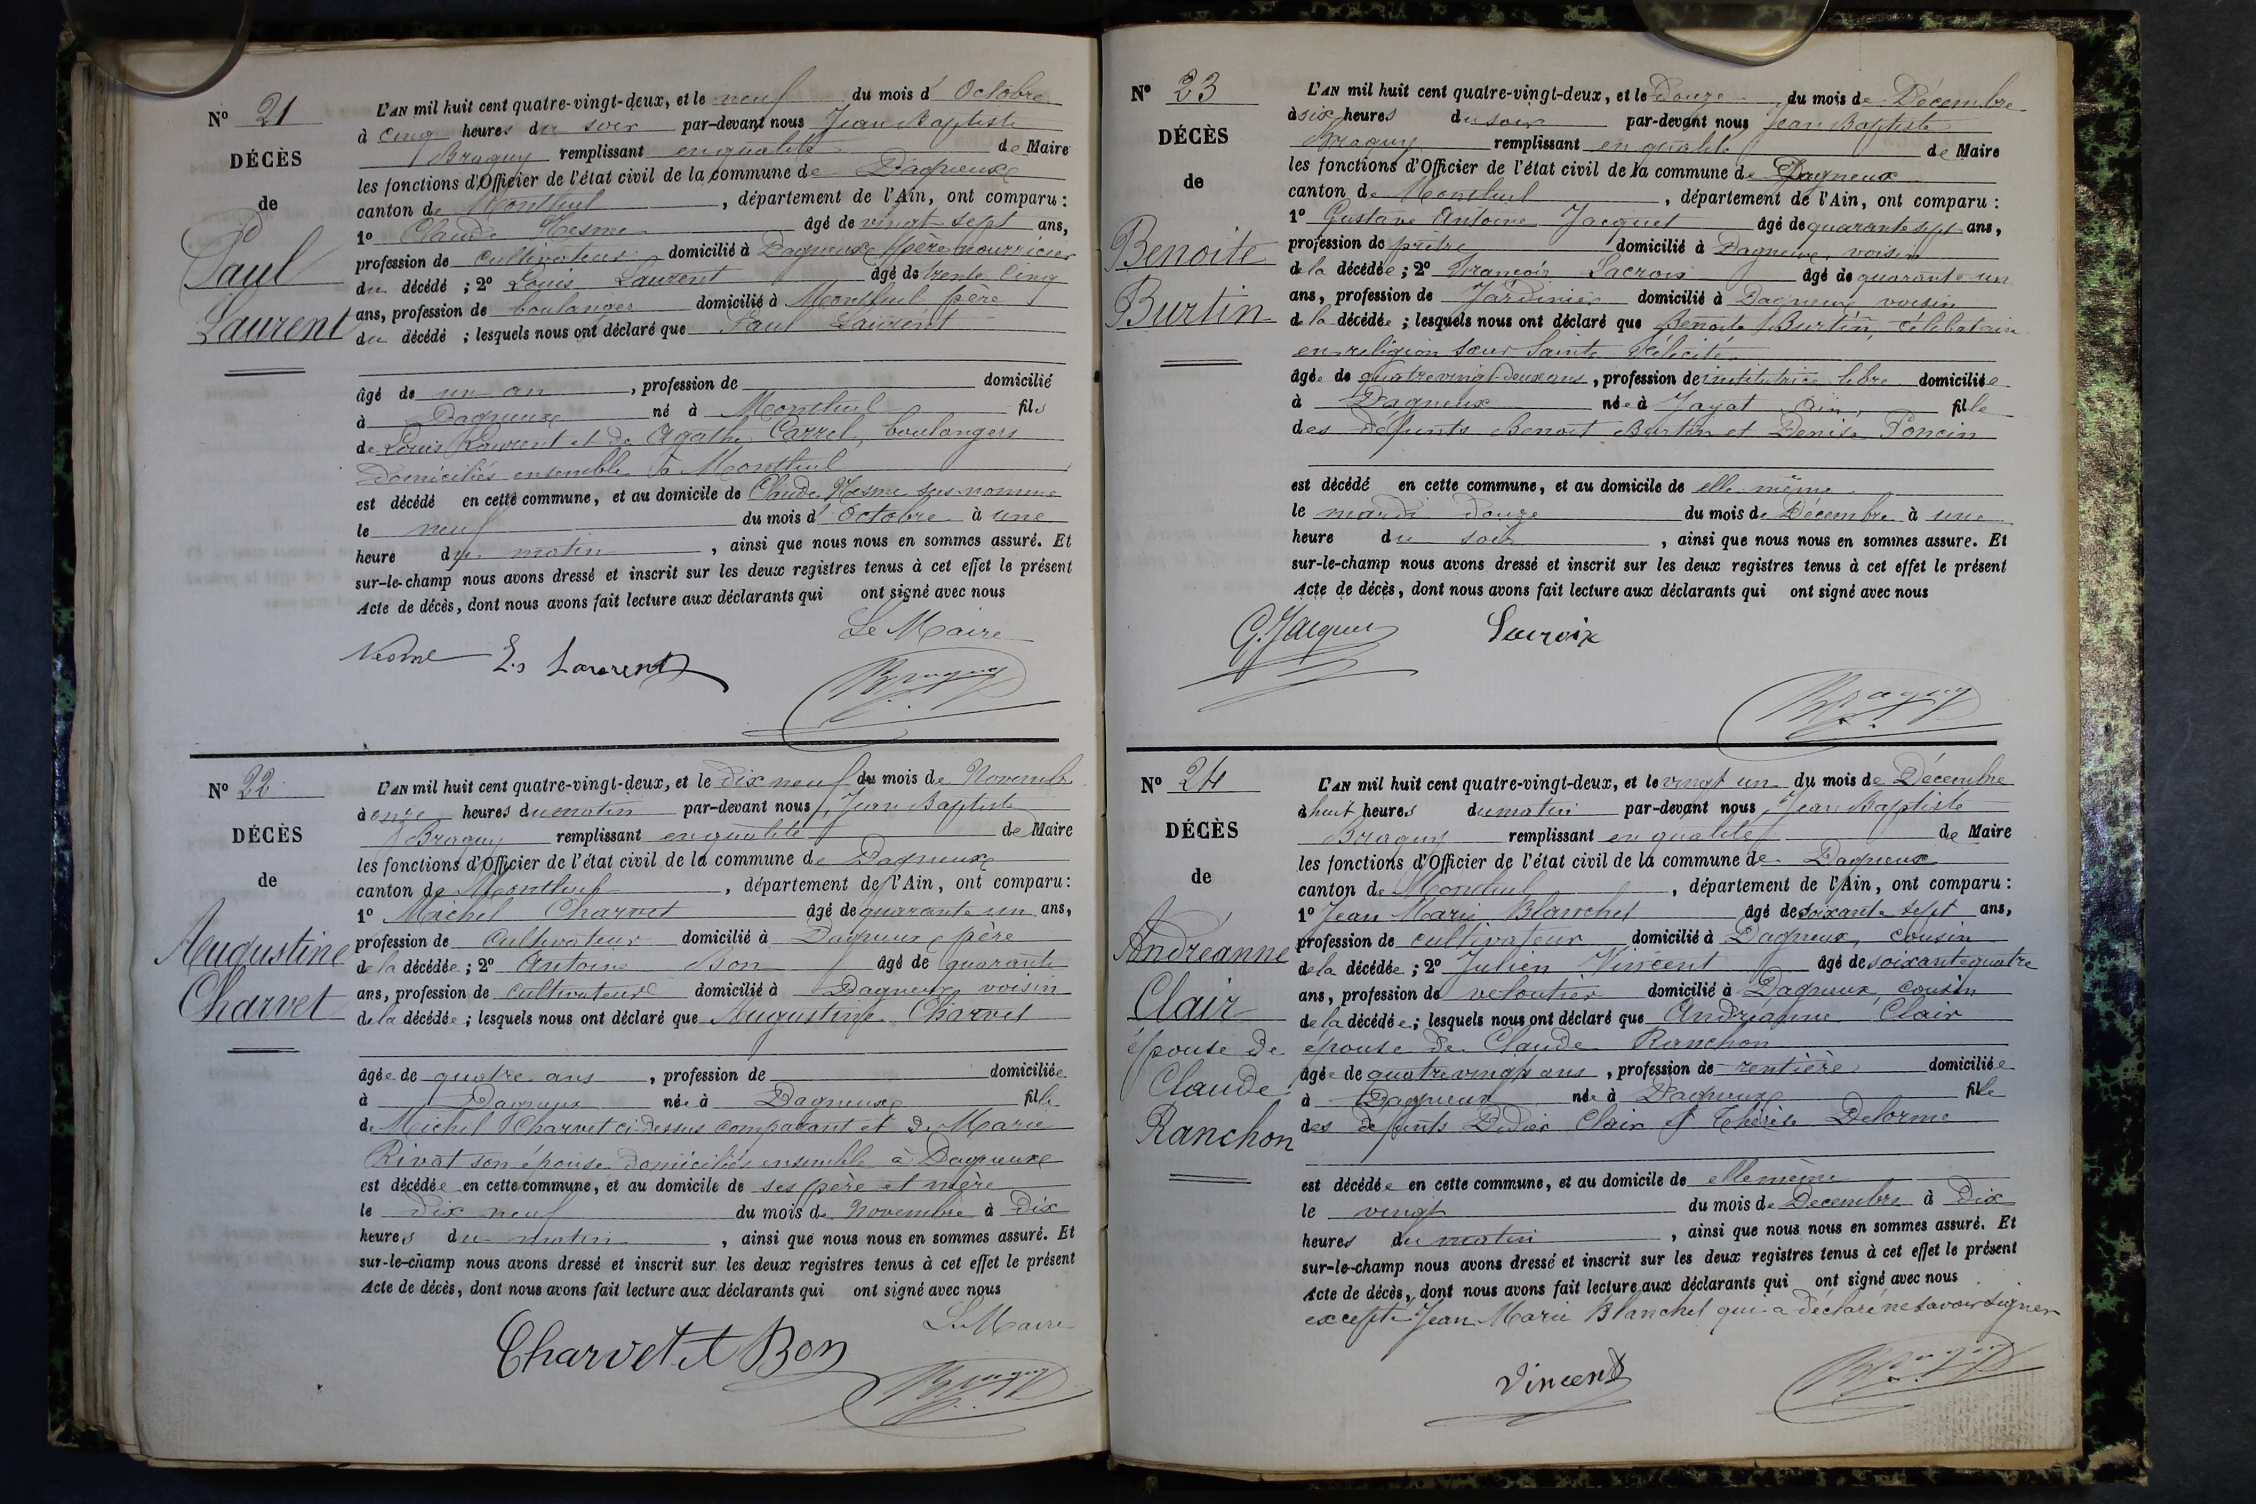 Nº 21
DÉCÈS
de
Paul
Laurent
L'AN mil huit cent quatre-vingt-deux, et le neuf du mois d'Octobre
à cinq heures du soir par-devant nous Jean Baptiste
Braguy remplissant en qualité de Maire
les fonctions d'Officier de l'état civil de la commune de Dagneux
canton de Montluel, département de l'Ain, ont comparu :
1º Claude Mesme âgé de vingt sept ans,
profession de cultivateur domicilié à Dagneux père nourricier
du décédé ; 2º Louis Laurent âgé de trente cinq
ans, profession de boulanger domicilié à Montluel père
du décédé ; lesquels nous ont déclaré que Paul Laurent
âgé de un an, profession de domicilié
à Dagneux né à Montluel fils
de Louis Laurent et de Agathe Carrel, boulangers
domiciliés ensemble à Montluel
est décédé en cette commune, et au domicile de Claude Mesme sus-nommé
le neuf du mois d'Octobre à une
heure du matin, ainsi que nous nous en sommes assuré. Et
sur-le-champ nous avons dressé et inscrit sur les deux registres tenus à cet effet le présent
Acte de décès, dont nous avons fait lecture aux déclarants qui ont signé avec nous
Le Maire
Mesme Ls Laurent Braguy
Nº 22
DÉCÈS
de
Augustine
Charvet
L'AN mil huit cent quatre-vingt-deux, et le dix neuf du mois de Novembre
à onze heures du matin par-devant nous Jean Baptiste
Braguy remplissant en qualité de Maire
les fonctions d'Officier de l'état civil de la commune de Dagneux
canton de Montluel, département de l'Ain, ont comparu :
1º Michel Charvet âgé de quarante un ans,
profession de cultivateur domicilié à Dagneux père
de la décédée ; 2º Antoine Bon âgé de quarante
ans, profession de cultivateur domicilié à Dagneux voisin
de la décédée ; lesquels nous ont déclaré que Augustine Charvet
âgée de quatre ans, profession de domiciliée
à Dagneux née à Dagneux fille
de Michel Charvet ci-dessus comparant et de Marie
Rivat son épouse domiciliés ensemble à Dagneux
est décédée en cette commune, et au domicile de ses père et mère
le dix neuf du mois de Novembre à dix
heures du matin, ainsi que nous nous en sommes assuré. Et
sur-le-champ nous avons dressé et inscrit sur les deux registres tenus à cet effet le présent
Acte de décès, dont nous avons fait lecture aux déclarants qui ont signé avec nous
Le Maire
Charvet A Bon Braguy
Nº 23
DÉCÈS
de
Benoite
Burtin
L'AN mil huit cent quatre-vingt-deux, et le douze du mois de Décembre
à six heures du soir par-devant nous Jean Baptiste
Braguy remplissant en qualité de Maire
les fonctions d'Officier de l'état civil de la commune de Dagneux
canton de Montluel, département de l'Ain, ont comparu :
1º Gustave Antoine Jacquet âgé de quarante sept ans,
profession de prêtre domicilié à Dagneux, voisin
de la décédée ; 2º François Lacroix âgé de quarante un
ans, profession de Jardinier domicilié à Dagneux voisin
de la décédée ; lesquels nous ont déclaré que Benoite Burtin, célibataire
en religion sœur Sainte Félicité
âgée de quatre vingt-deux ans, profession de institutrice libre domiciliée
à Dagneux née à Jayat Ain, fille
des défunts Benoit Burtin et Denise Poncin
est décédé en cette commune, et au domicile de elle même
le mardi douze du mois de Décembre à une
heure du soir, ainsi que nous nous en sommes assuré. Et
sur-le-champ nous avons dressé et inscrit sur les deux registres tenus à cet effet le présent
Acte de décès, dont nous avons fait lecture aux déclarants qui ont signé avec nous
G. Jacquet Lacroix
Braguy
Nº 24
DÉCÈS
de
Andréanne
Clair
épouse de
Claude
Ranchon
L'AN mil huit cent quatre-vingt-deux, et le vingt un du mois de Décembre
à huit heures du matin par-devant nous Jean Baptiste
Braguy remplissant en qualité de Maire
les fonctions d'Officier de l'état civil de la commune de Dagneux
canton de Montluel, département de l'Ain, ont comparu :
1º Jean Marie Blanchet âgé de soixante sept ans,
profession de cultivateur domicilié à Dagneux, cousin
de la décédée ; 2º Julien Vincent âgé de soixante quatre
ans, profession de veloutier domicilié à Dagneux, cousin
de la décédée ; lesquels nous ont déclaré que Andréanne Clair
épouse de Claude Ranchon
âgée de quatre vingts ans, profession de rentière domiciliée
à Dagneux née à Dagneux fille
des défunts Didier Clair et Thérèse Delorme
est décédée en cette commune, et au domicile de elle même
le vingt du mois de Décembre à dix
heures du matin, ainsi que nous nous en sommes assuré. Et
sur-le-champ nous avons dressé et inscrit sur les deux registres tenus à cet effet le présent
Acte de décès, dont nous avons fait lecture aux déclarants qui ont signé avec nous
excepté Jean Marie Blanchet qui a déclaré ne savoir signer
Vincent Braguy